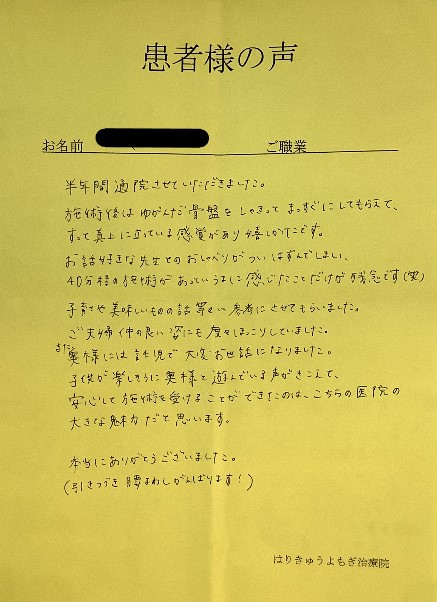 患者様の声
お名前
ご職業
半年間通院させていただきました。
施術後はゆがんだ骨盤をしゃきって まっすぐにしてもらえて、
すって真上に立っている感覚があり嬉しかたです。
お話好きな先生とのおしゃべりがついはずんでしまい、
40分程の施術があっというまに感じたことだけが残念です(笑)
子育てや美味しいものの話等々い参考にさせてもらいました。
ご夫婦仲の良い姿にも度々ほっこりしていました。
また奥様には託児で大変お世話になりました。
子供が楽しそうに奥様と遊んでいる声がきこえて、
安心して施術を受けることができたのは、こちらの医院の
大きな魅力だと思います。
本当にありがとうございました。
(引きつづき腰まわしがんばります!)
はりきゅうよもぎ治療院